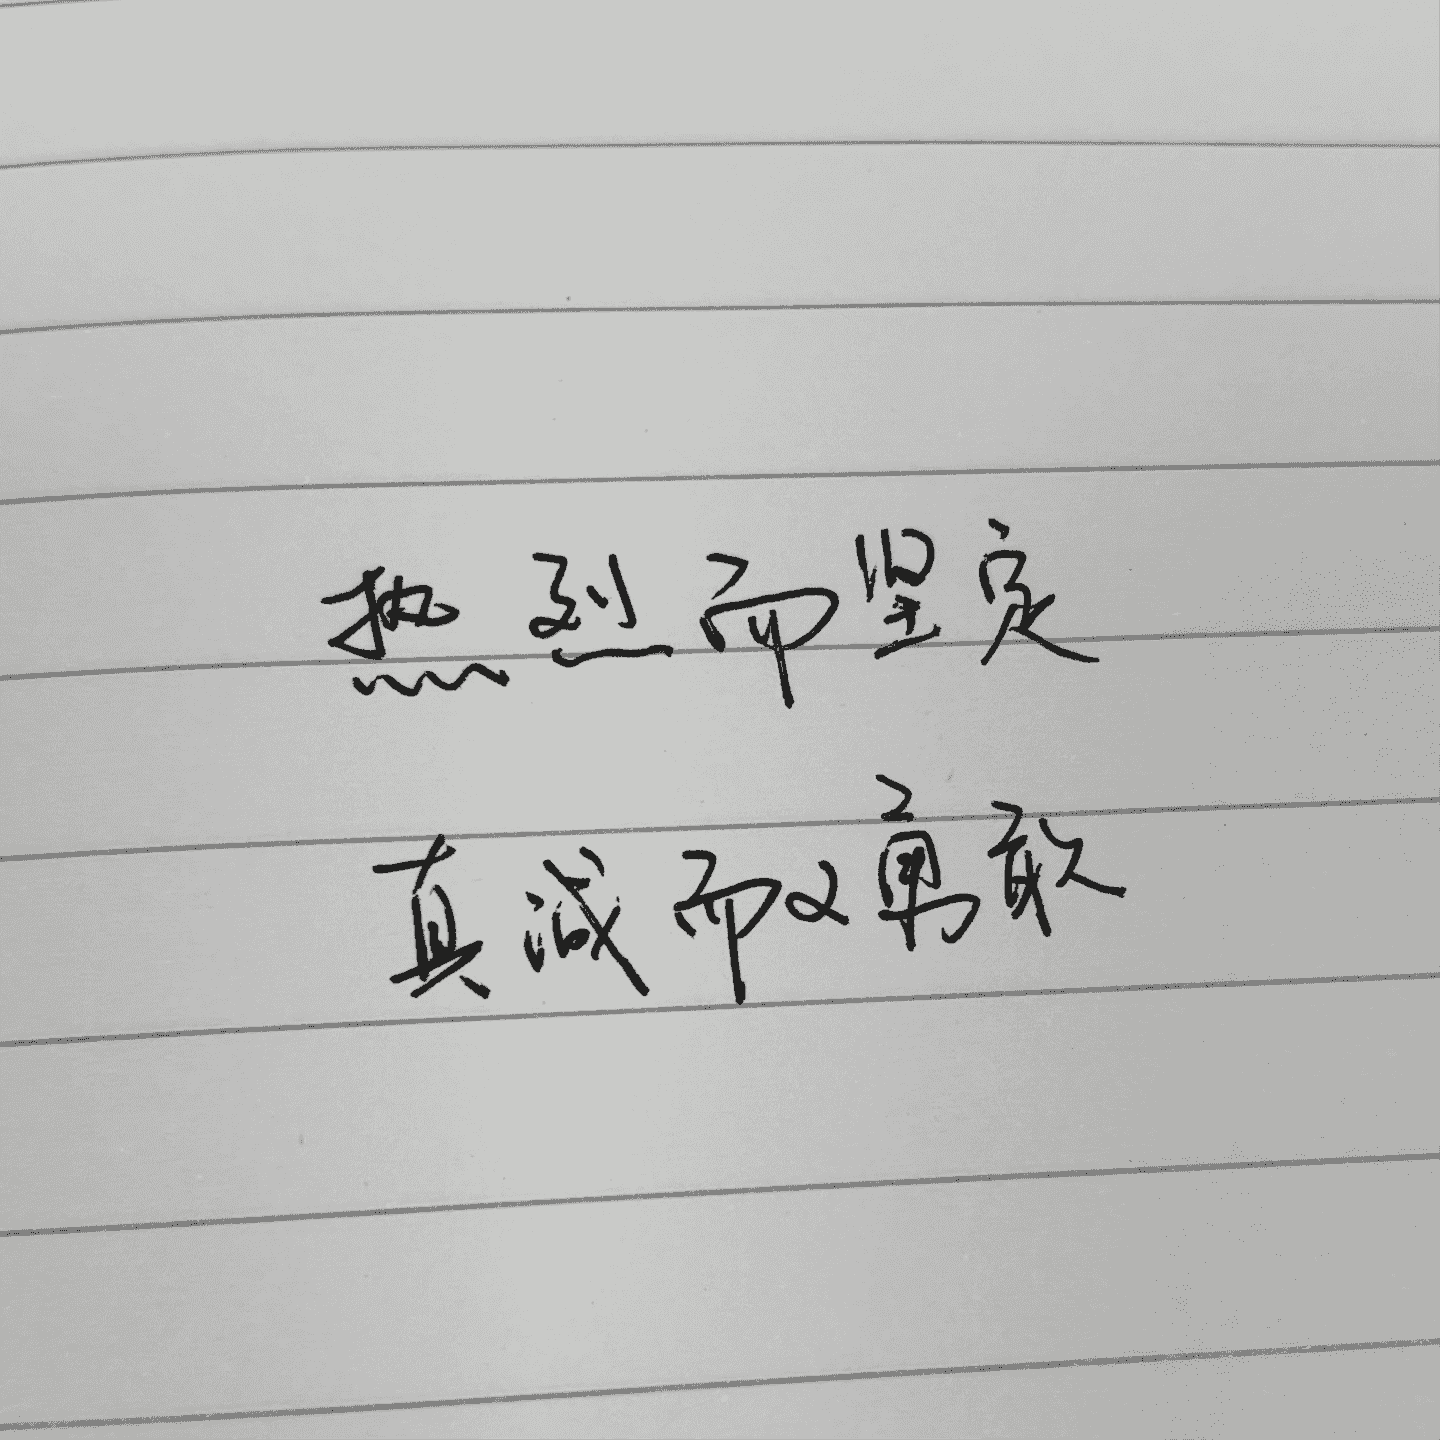 热烈而坚定
真诚而又勇敢